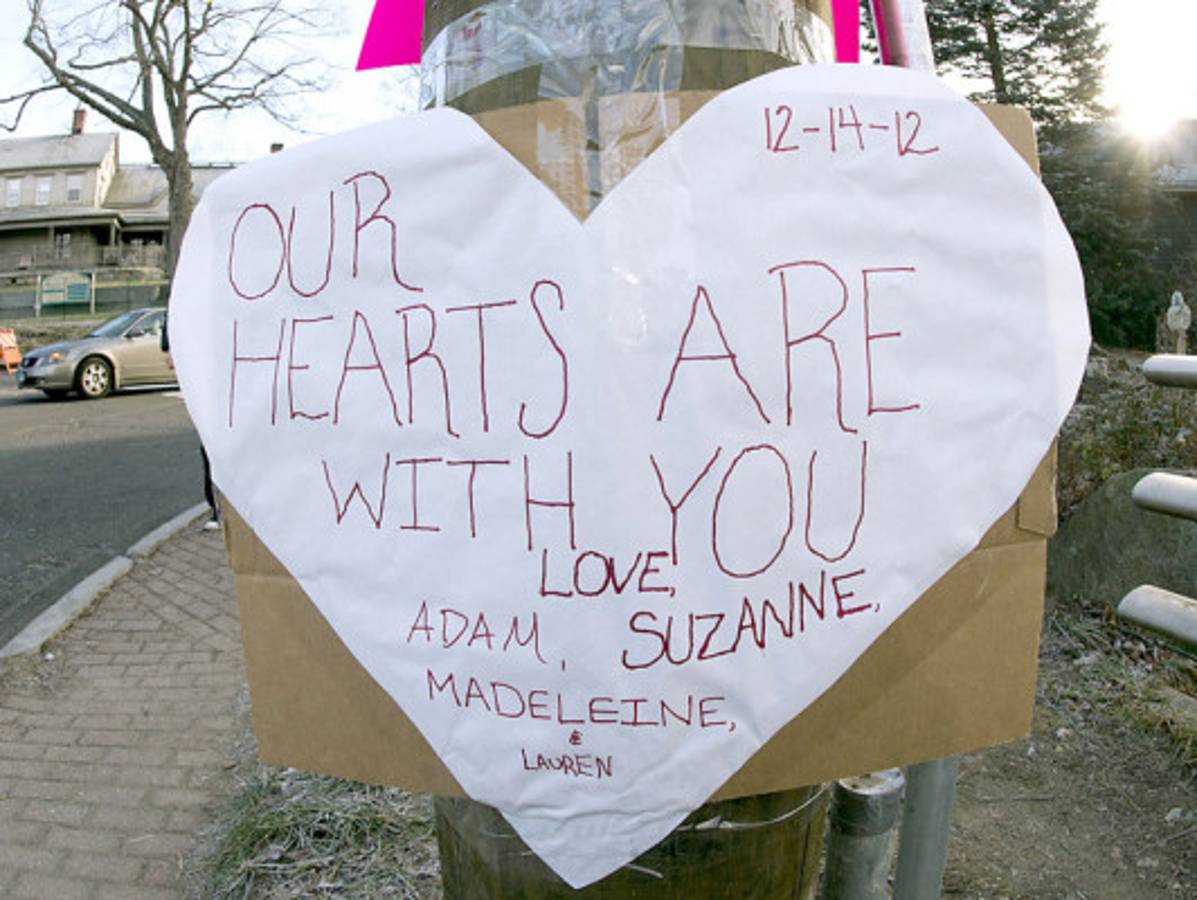 12-14-12
OUR
HEARTS ARE
WITH YOU
LOVE,
ADAM, SUZANNE,
MADELEINE,
&
LAUREN